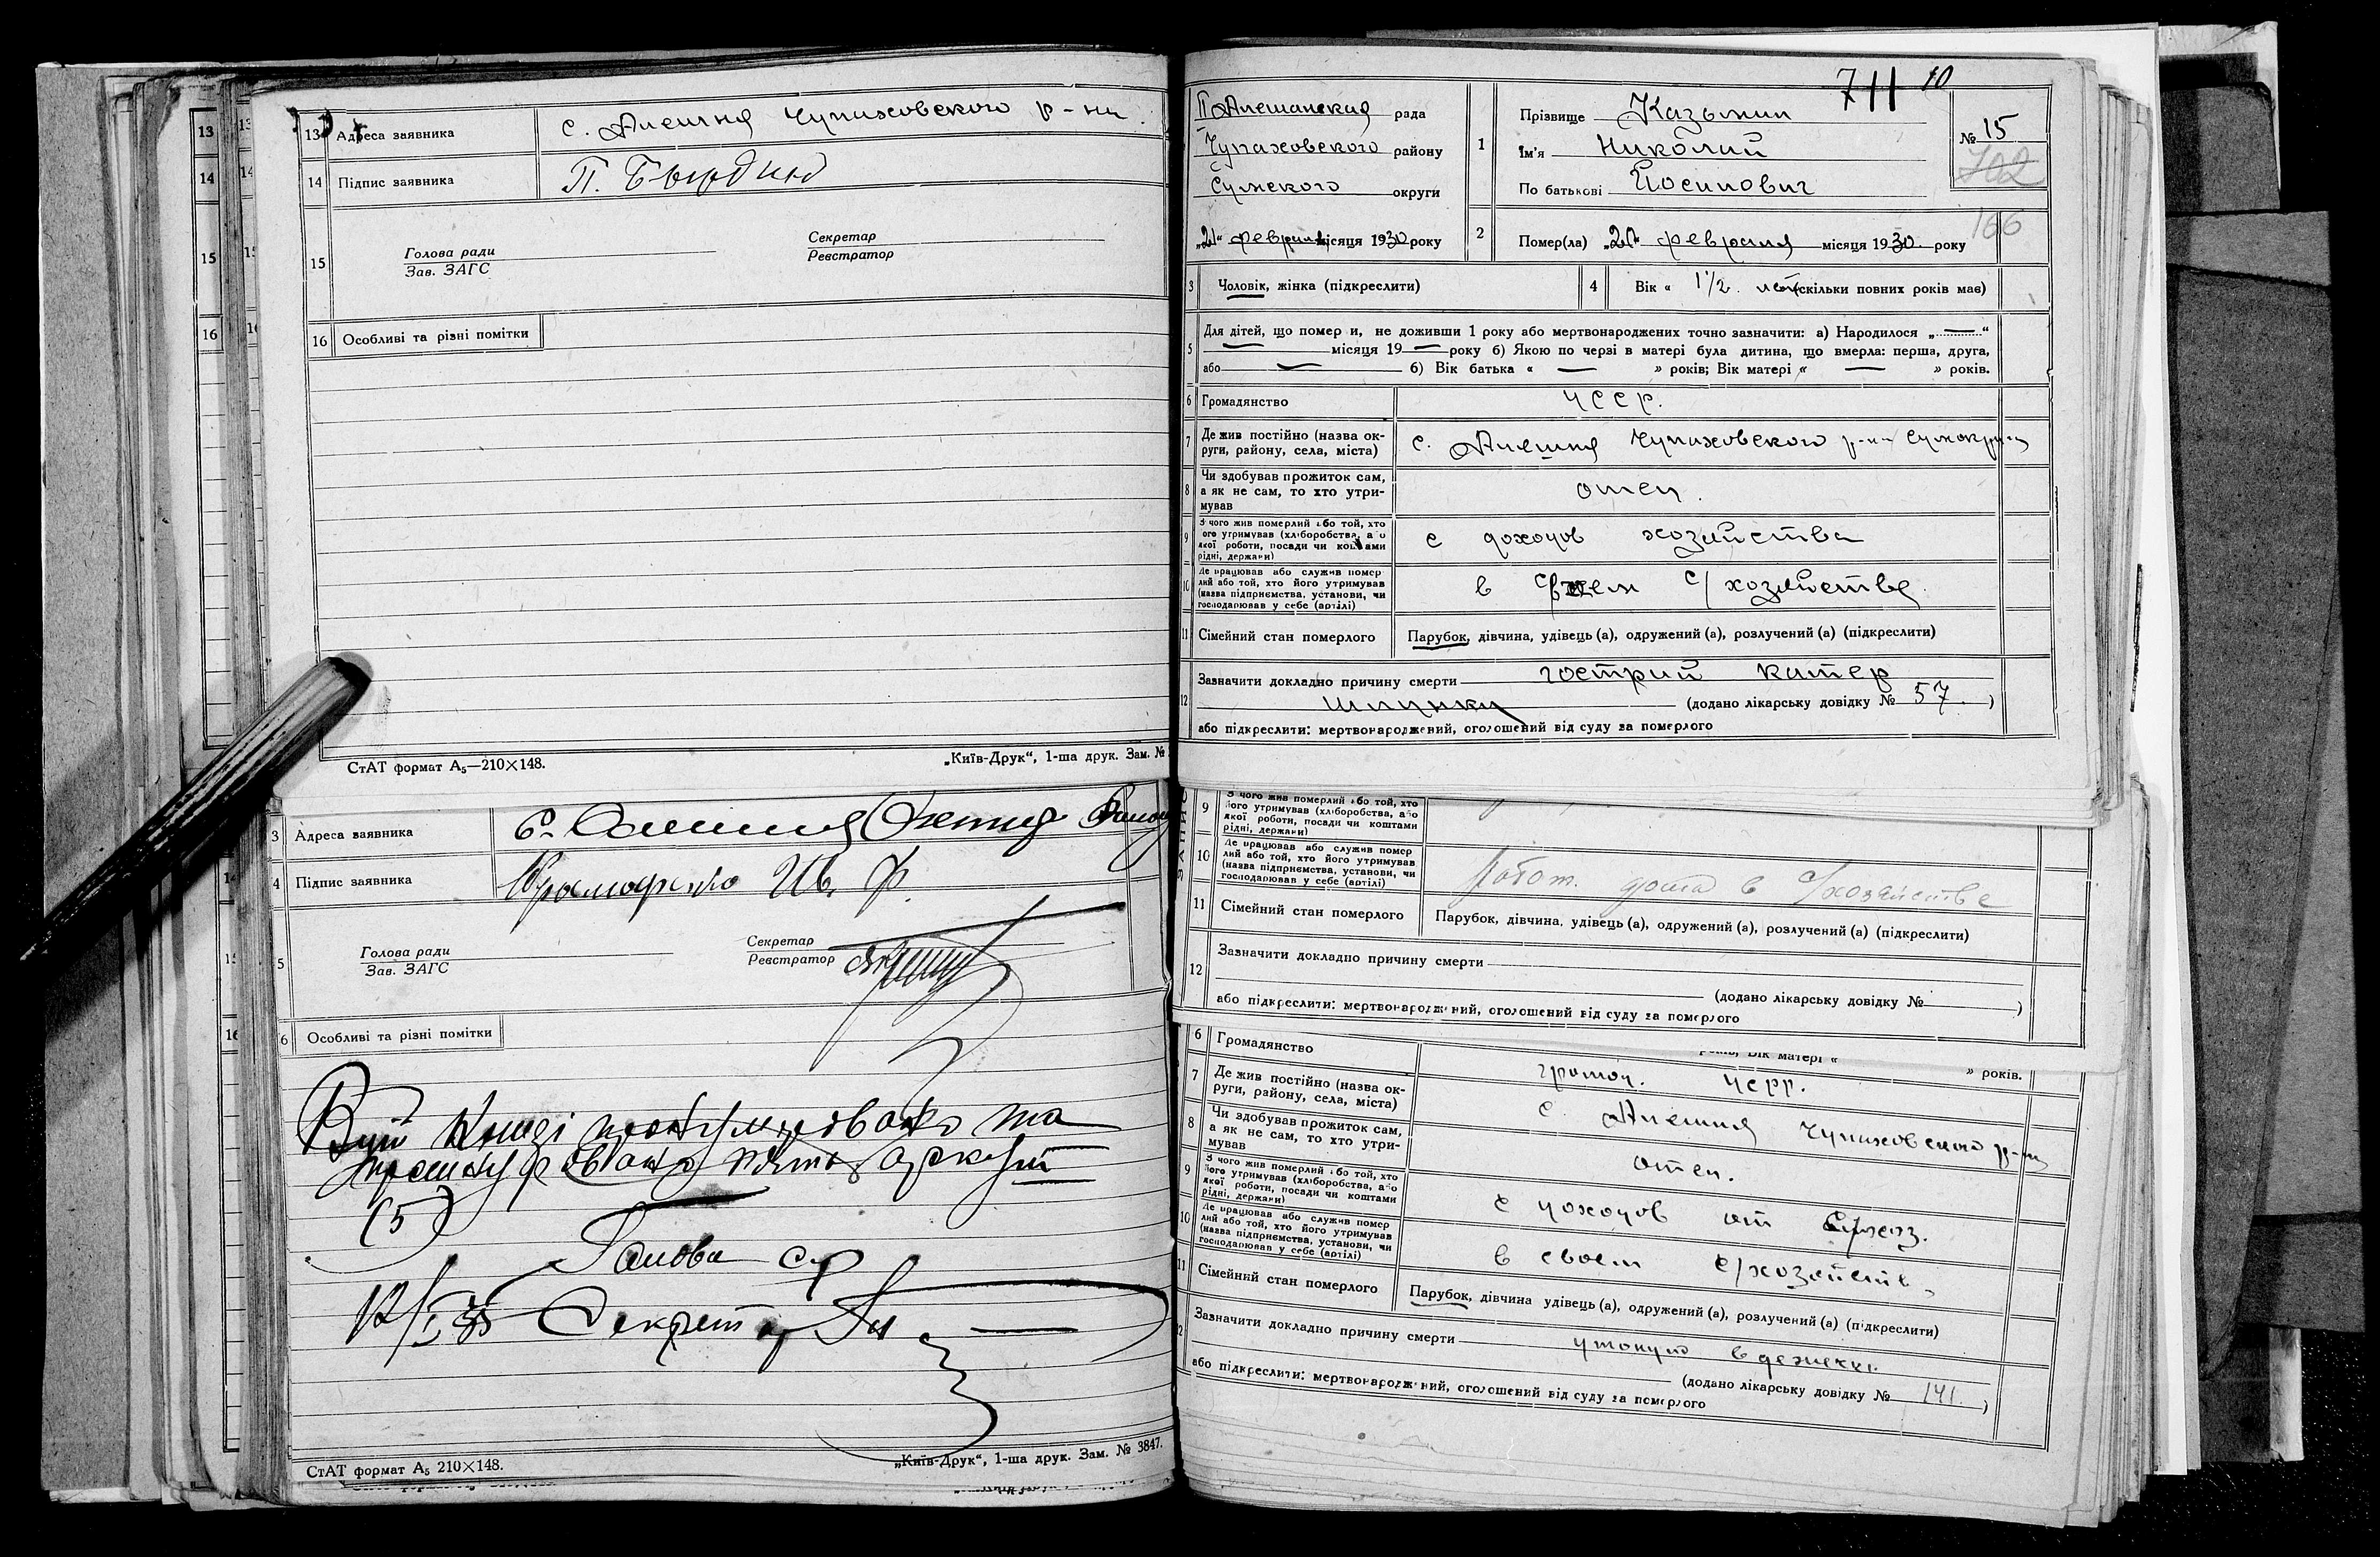 13 Адреса заявника с. Алешня Чупаховского р-на.
14 Підпис заявника П. Бындид
15 Голова ради
Зав. ЗАГС
Секретар
Реєстратор
16 Особливі та різні помітки
СтАТ формат А₅—210×148. „Київ-Друк“, 1-ша друк. Зам. №
3 Адреса заявника с.
4 Підпис заявника Ив. Ф.
5 Голова ради
Зав. ЗАГС
Секретар
Реєстратор
6 Особливі та різні помітки
В цій книзі пронумеровано та
прошнуровано пять аркушів
(5)
Голова с/р
Секретар
СтАТ формат А₅ 210×148. „Київ-Друк“, 1-ша друк. Зам. № 3847.
711 10
II Алешанская рада
Чупаховского району
Сумского округи
„21“ февраля місяця 1930 року
1 Прізвище Казьмин
Ім'я Николай
По батькові Йосипович
№ 15
702
166
2 Помер(ла) „20“ февраля місяця 1930 року
3 Чоловік, жінка (підкреслити)
4 Вік « 1½ лет (скільки повних років має)
5 Для дітей, що померли, не доживши 1 року або мертвонароджених точно зазначити: а) Народилося „—“
місяця 19— року б) Якою по черзі в матері була дитина, що вмерла: перша, друга,
або — б) Вік батька « — » років; Вік матері « — » років.
6 Громадянство УССР.
7 Де жив постійно (назва округи, району, села, міста) с. Алешня Чупаховского р-на Сумокруги
8 Чи здобував прожиток сам, а як не сам, то хто утримував отец.
9 З чого жив померлий або той, хто його утримував (хліборобства, або якої роботи, посади чи коштами рідні, держави) с доходов хозяйства
10 Де працював або служив померлий або той, хто його утримував (назва підприємства, установи, чи господарював у себе (артілі) в своем с/хозяйстве
11 Сімейний стан померлого Парубок, дівчина, удівець (а), одружений (а), розлучений (а) (підкреслити)
12 Зазначити докладно причину смерти гострий катер
шлунку (додано лікарську довідку № 57.)
або підкреслити: мертвонароджений, оголошений від суду за померлого
9 З чого жив померлий або той, хто його утримував (хліборобства, або якої роботи, посади чи коштами рідні, держави)
10 Де працював або служив померлий або той, хто його утримував (назва підприємства, установи, чи господарював у себе (артілі) работ. дома в с/хозяйстве
11 Сімейний стан померлого Парубок, дівчина, удівець (а), одружений (а), розлучений (а) (підкреслити)
12 Зазначити докладно причину смерти
(додано лікарську довідку № )
або підкреслити: мертвонароджений, оголошений від суду за померлого
років; Вік матері « » років.
6 Громадянство громад. УСРР.
7 Де жив постійно (назва округи, району, села, міста) с. Алешня Чупаховского р-на
8 Чи здобував прожиток сам, а як не сам, то хто утримував отец.
9 З чого жив померлий або той, хто його утримував (хліборобства, або якої роботи, посади чи коштами рідні, держави) с доходов от с/хоз.
10 Де працював або служив померлий або той, хто його утримував (назва підприємства, установи, чи господарював у себе (артілі) в своем с/хозяйств
11 Сімейний стан померлого Парубок, дівчина удівець (а), одружений (а), розлучений (а) (підкреслити)
12 Зазначити докладно причину смерти утонул в
(додано лікарську довідку № 141.)
або підкреслити: мертвонароджений, оголошений від суду за померлого